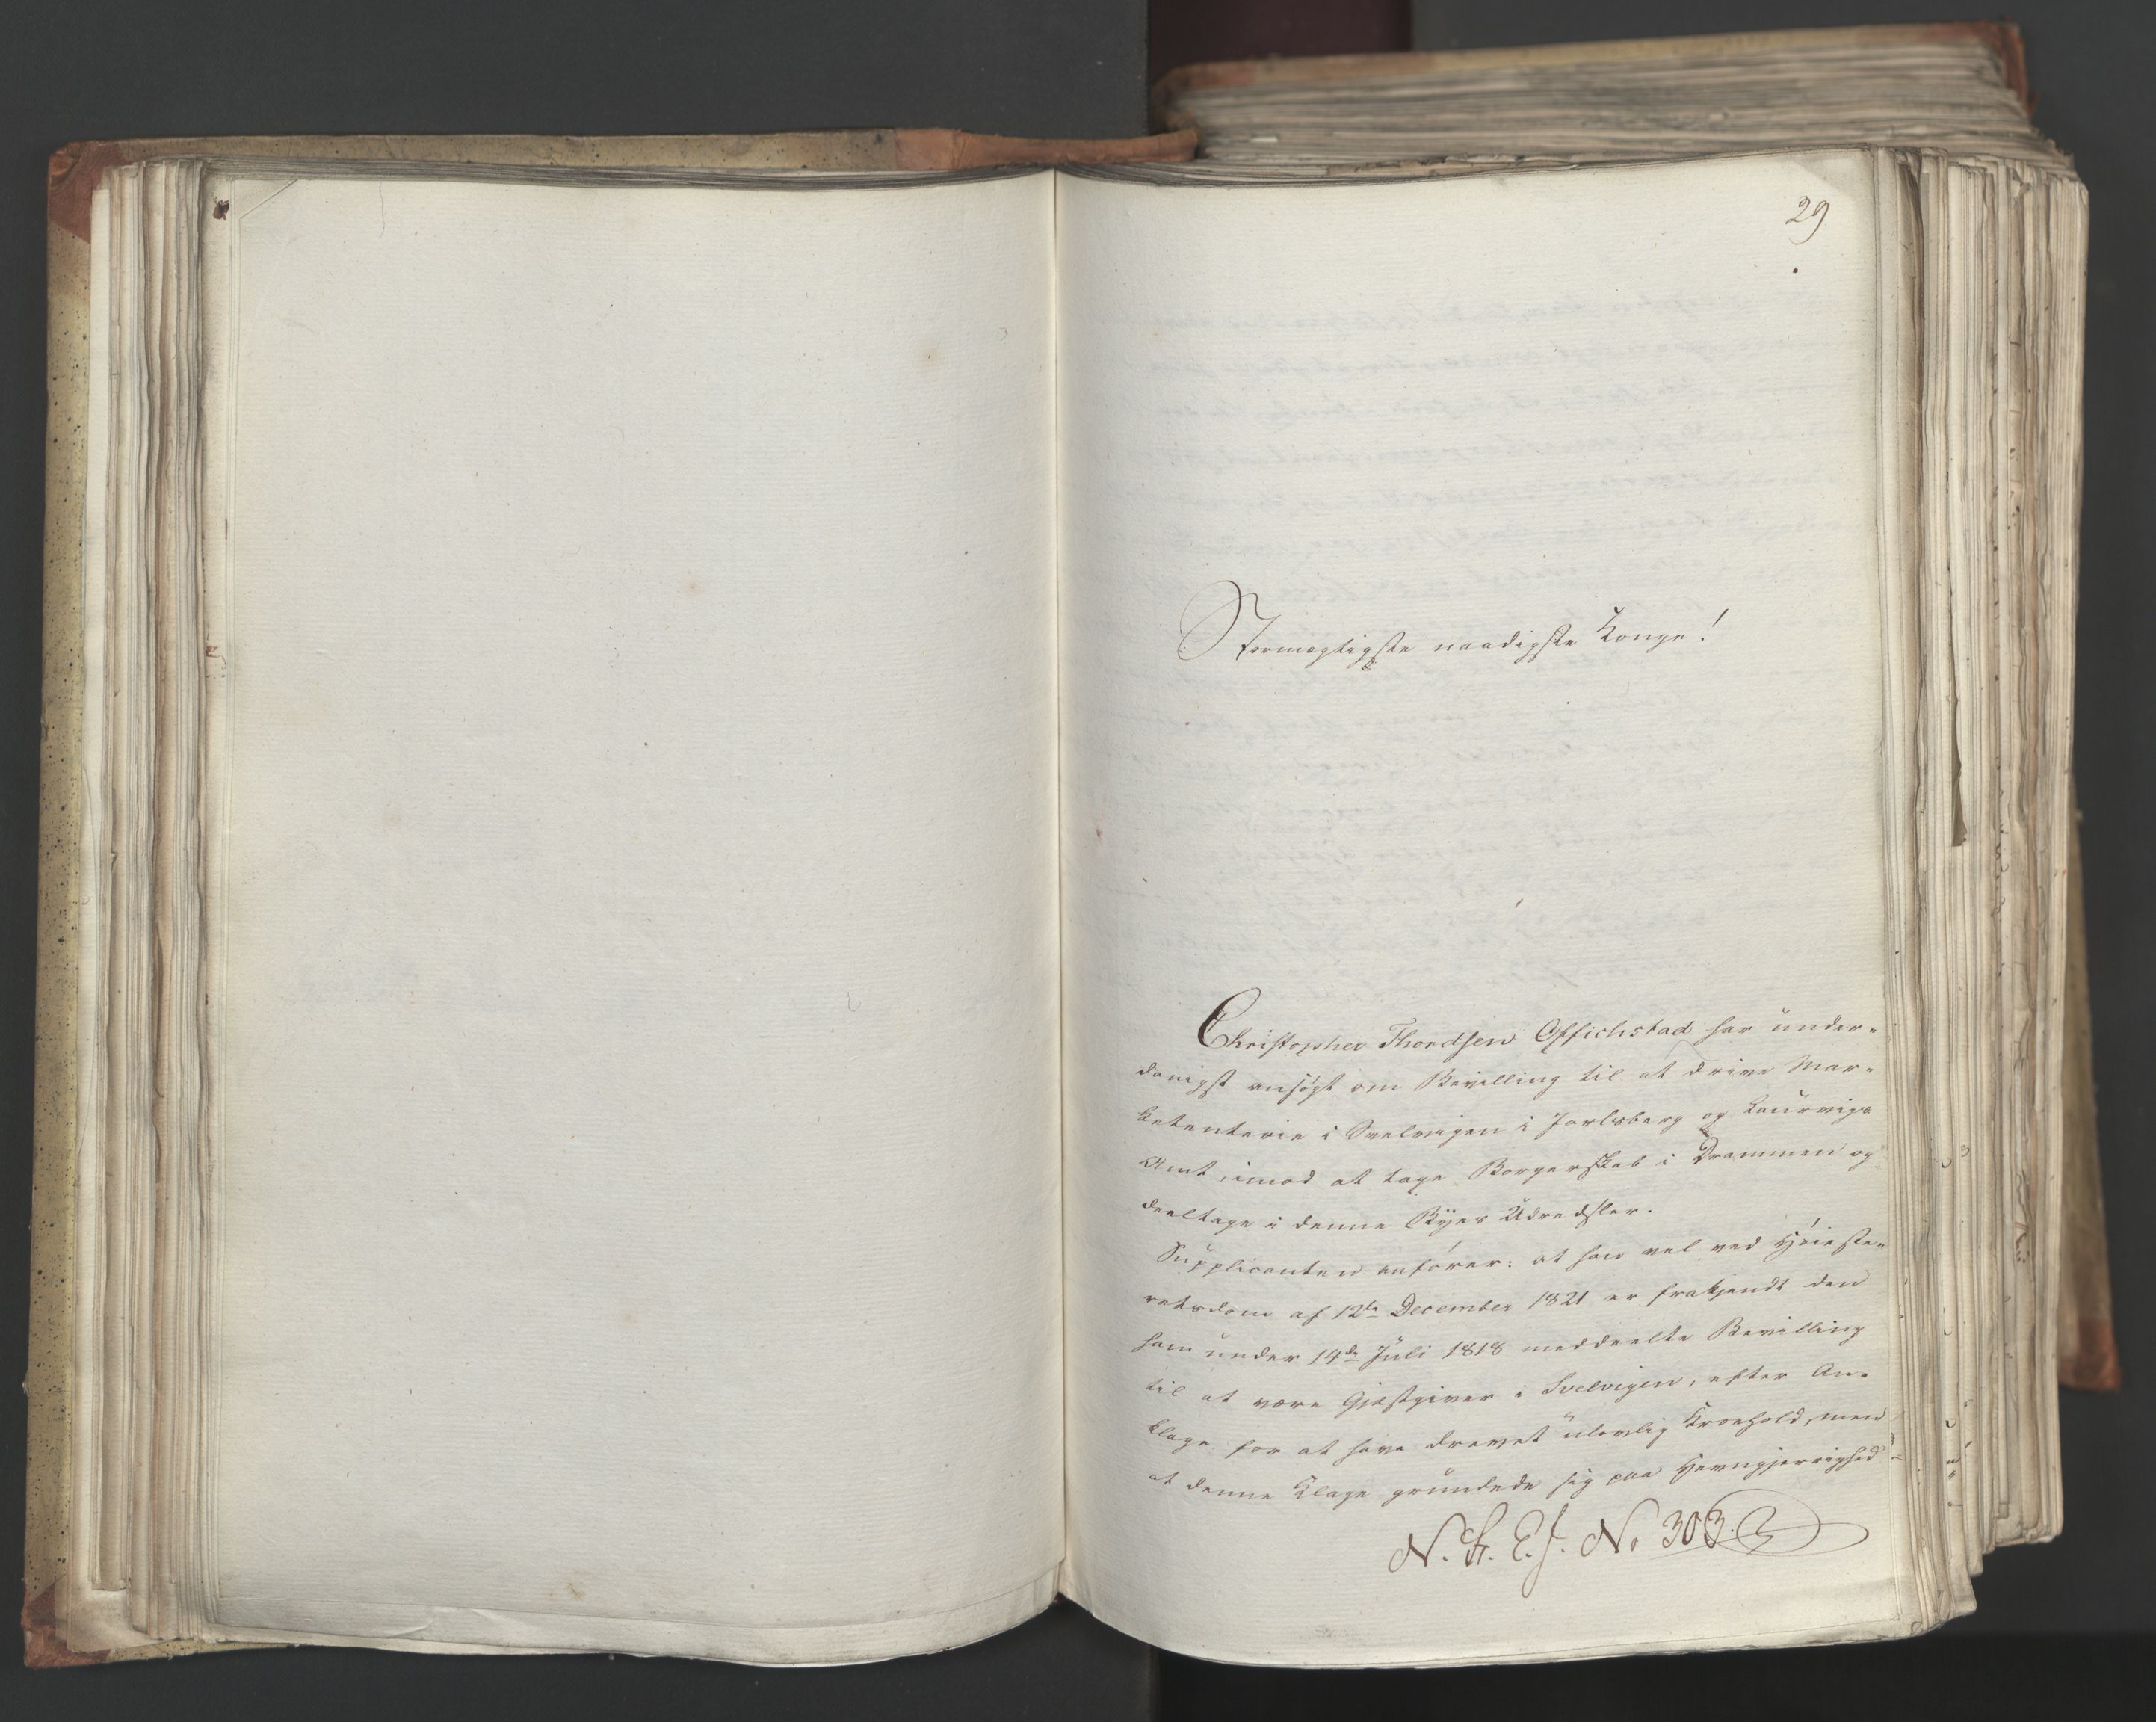 29
Stormægtigste naadigste Konge!
Christopher Thordsen Offichstad har under-
danigst ansøgt om Bevilling til at drive Mar-
ketenterie i Svelvigen i Jarlsberg og Laurvigs
Amt, imod at tage Borgerskab i Drammen og
deeltage i denne Byes Udredsler.
Supplicanten anfører: at han vel ved Høieste-
retsdom af 12te December 1821 er frakjendt den
ham under 14de Juli 1818 meddeelte Bevilling
til at være Gjæstgiver i Svelvigen, efter An-
klage for at have drevet ulovlig Kroehold, men
at denne Klage grundede sig paa Hevngjerrighed
N. St. E. J. No 303.